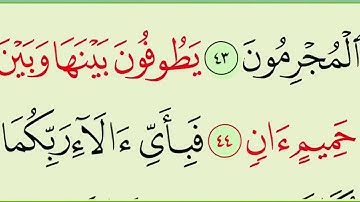 ٱلْمُجْرِمُونَ ٤٣ يَطُوفُونَ بَيْنَهَا وَبَيْنَ
حَمِيمٍ ءَانٍ ٤٤ فَبِأَىِّ ءَالَآءِ رَبِّكُمَا